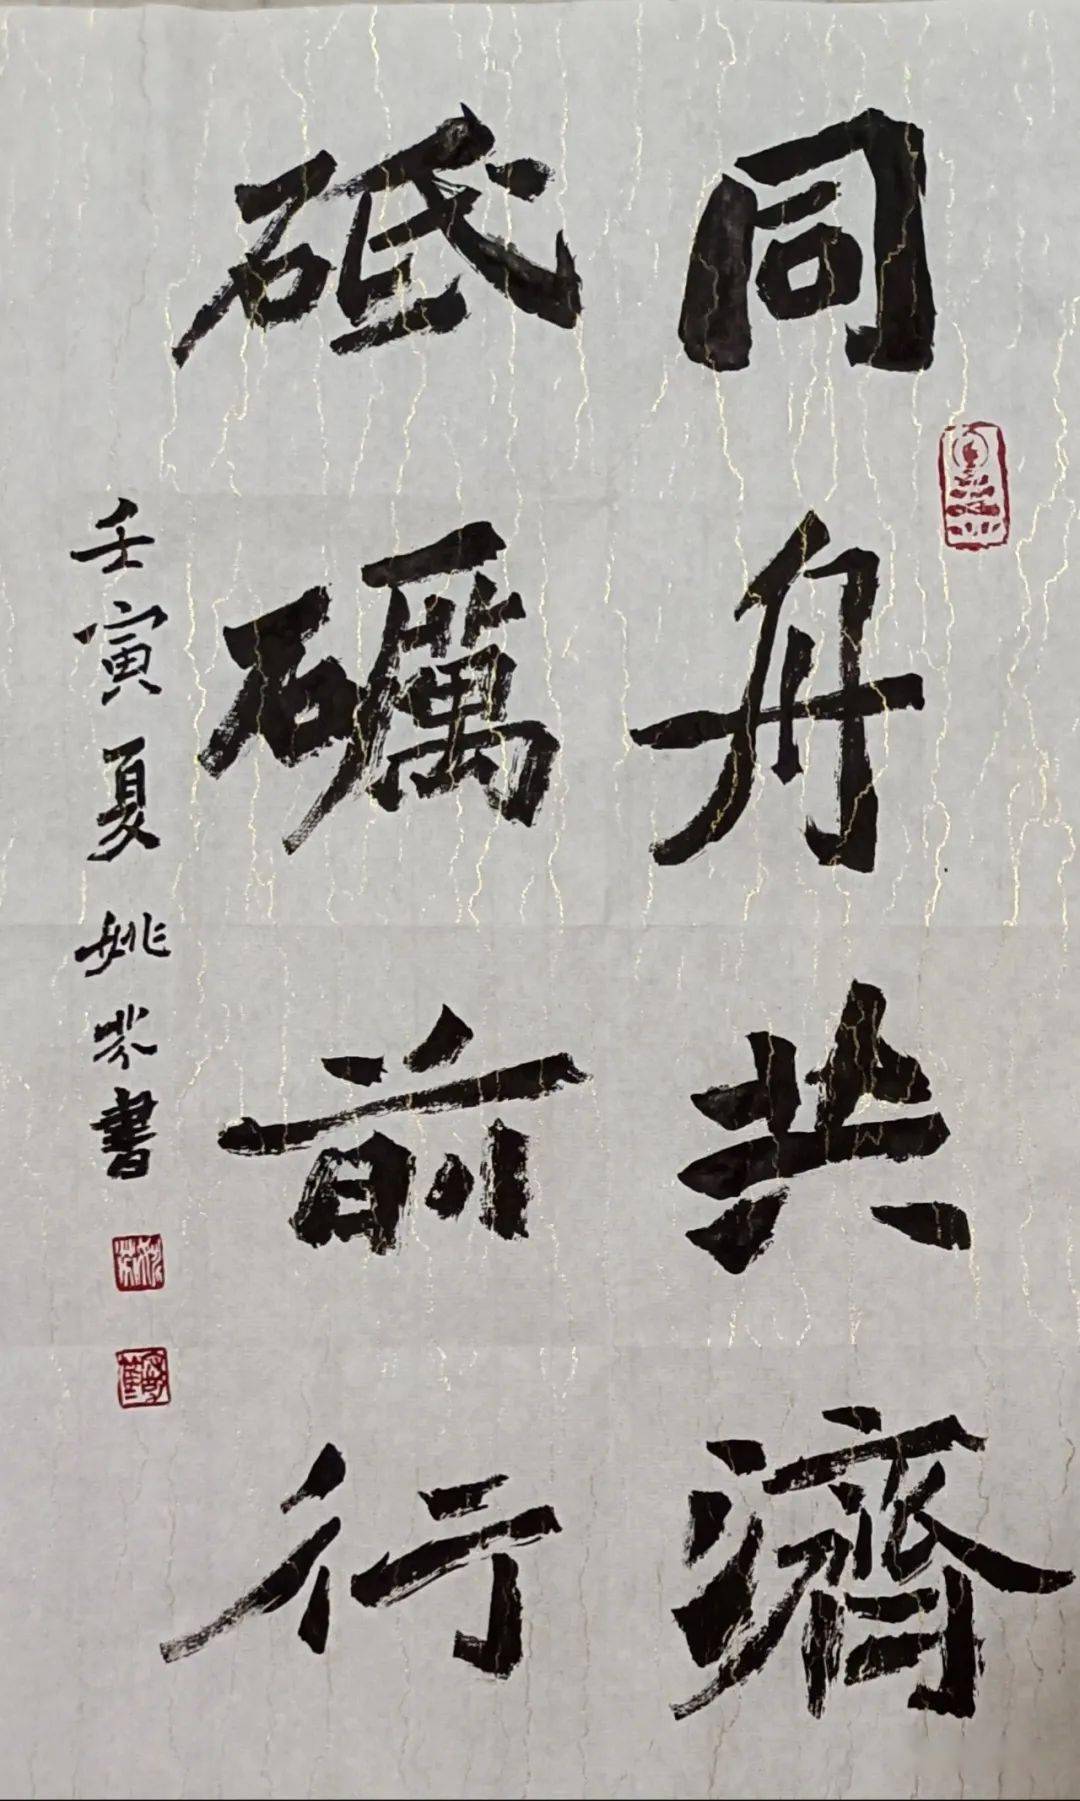 同舟共濟
砥礪前行
壬寅夏姚芬書